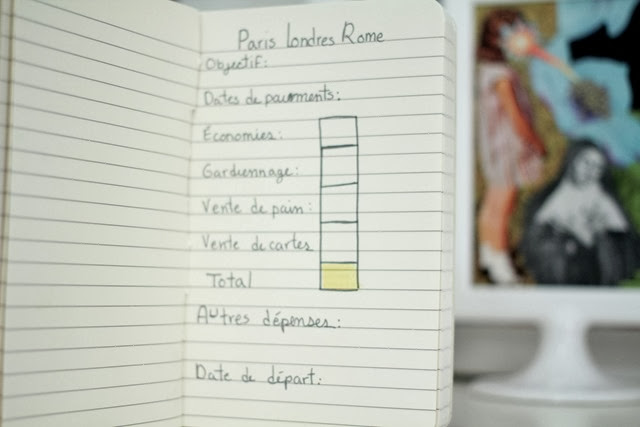 Paris Londres Rome
Objectif:
Dates de paiements:
Économies:
Gardiennage:
Vente de pain:
Vente de cartes
Total
Autres dépenses:
Date de départ: